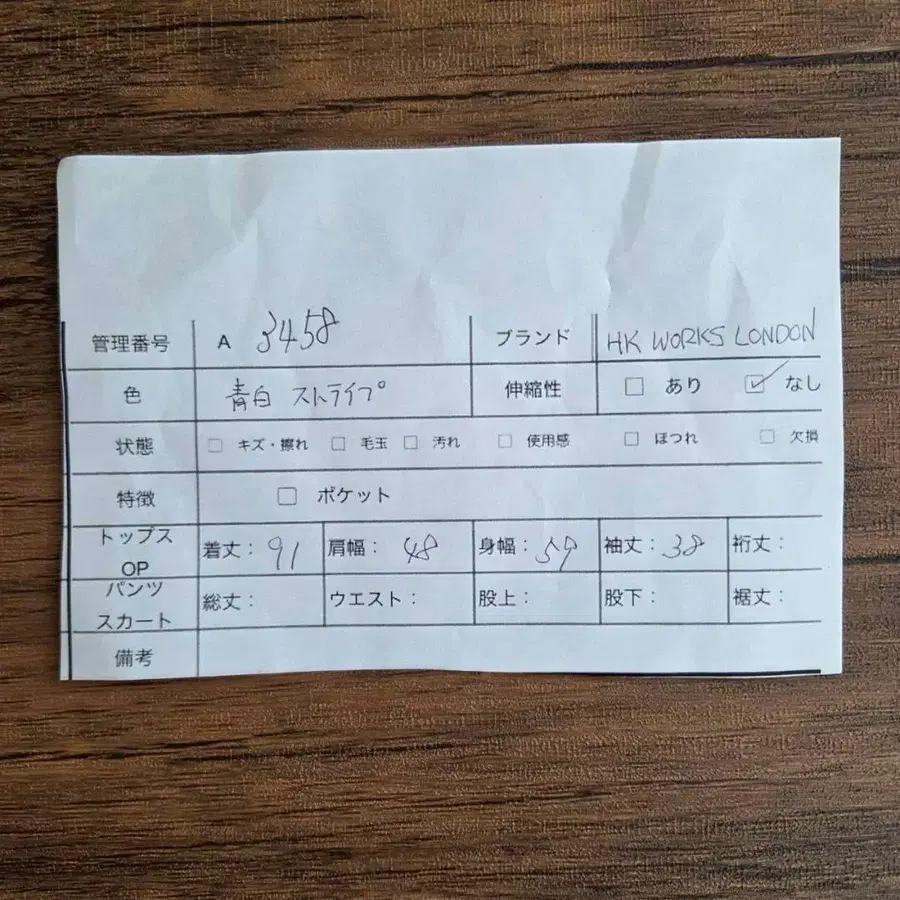 管理番号 A 3458 ブランド HK WORKS LONDON
色 青白 ストライプ 伸縮性 □ あり ☑ なし
状態 □ キズ・擦れ □ 毛玉 □ 汚れ □ 使用感 □ ほつれ □ 欠損
特徴 □ ポケット
トップス OP 着丈：91 肩幅：48 身幅：59 袖丈：38 裄丈：
パンツ スカート 総丈： ウエスト： 股上： 股下： 裾丈：
備考